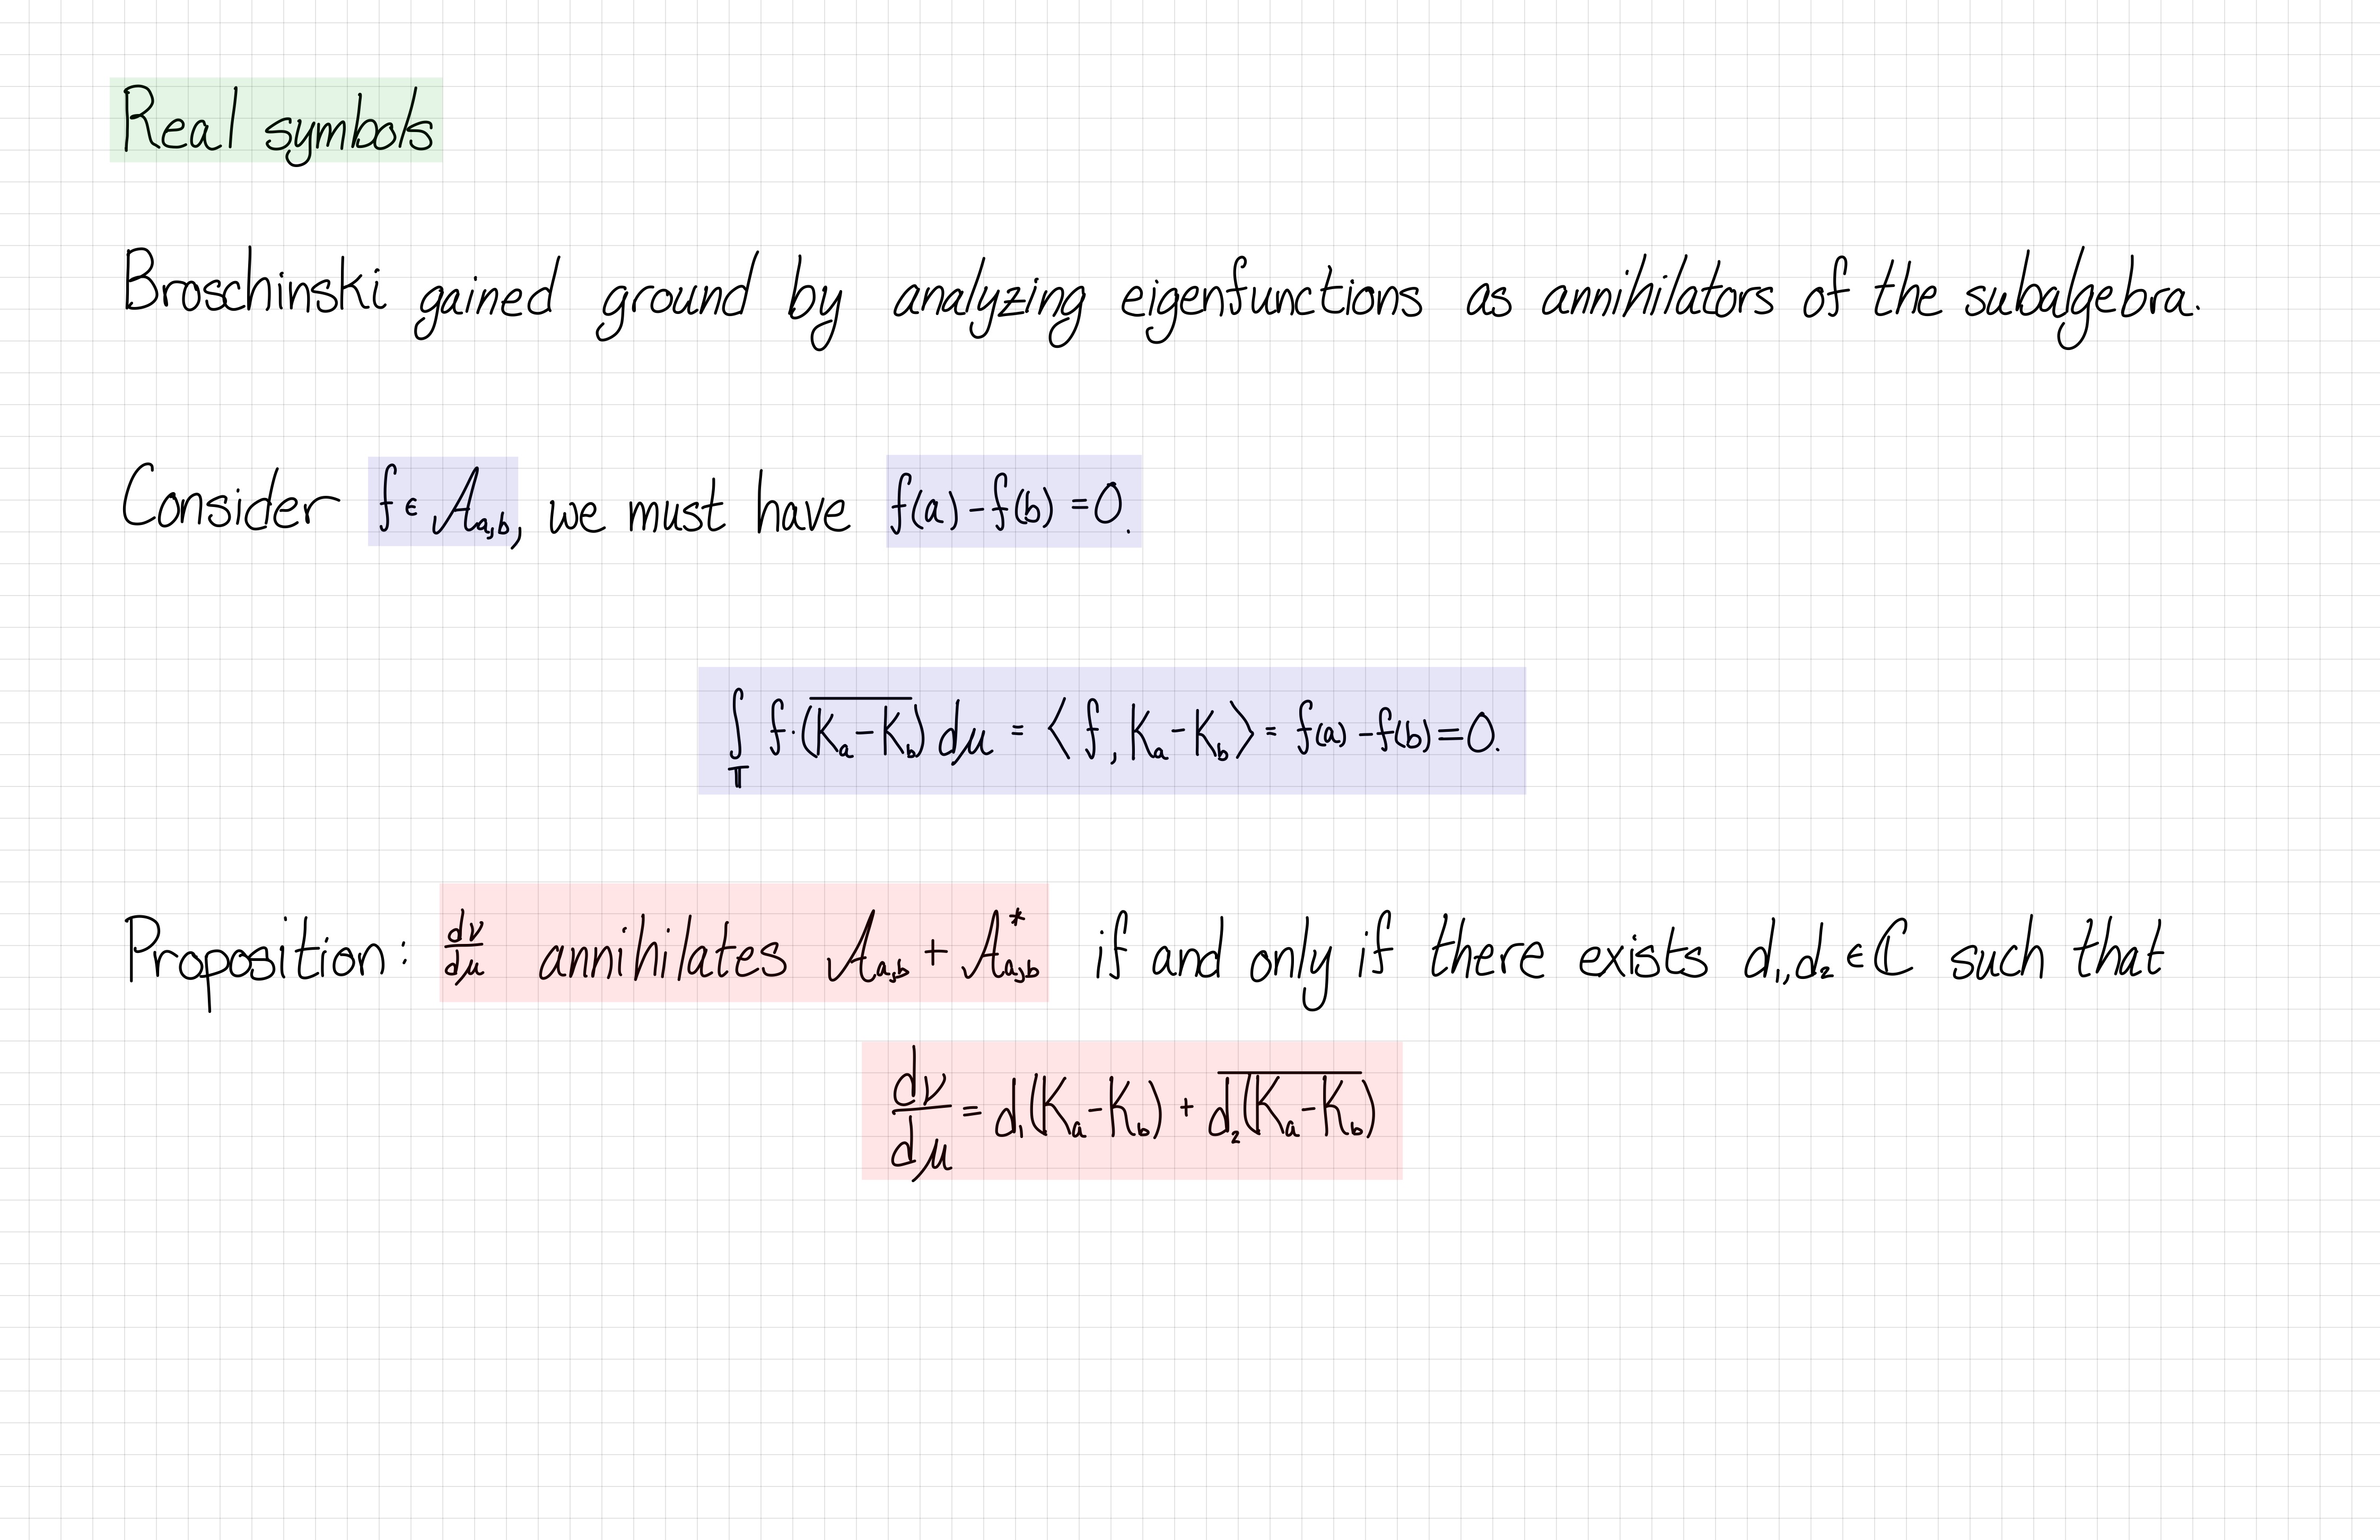 Real symbols
Broschinski gained ground by analyzing eigenfunctions as annihilators of the subalgebra.
Consider f ∈ 𝒜_{a,b}, we must have f(a) - f(b) = 0.
∫_𝕋 f · \overline{(K_a - K_b)} dμ = ⟨f, K_a - K_b⟩ = f(a) - f(b) = 0.
Proposition: dν/dμ annihilates 𝒜_{a,b} + 𝒜*_{a,b} if and only if there exists d₁, d₂ ∈ ℂ such that
dν/dμ = d₁(K_a - K_b) + \overline{d₂(K_a - K_b)}